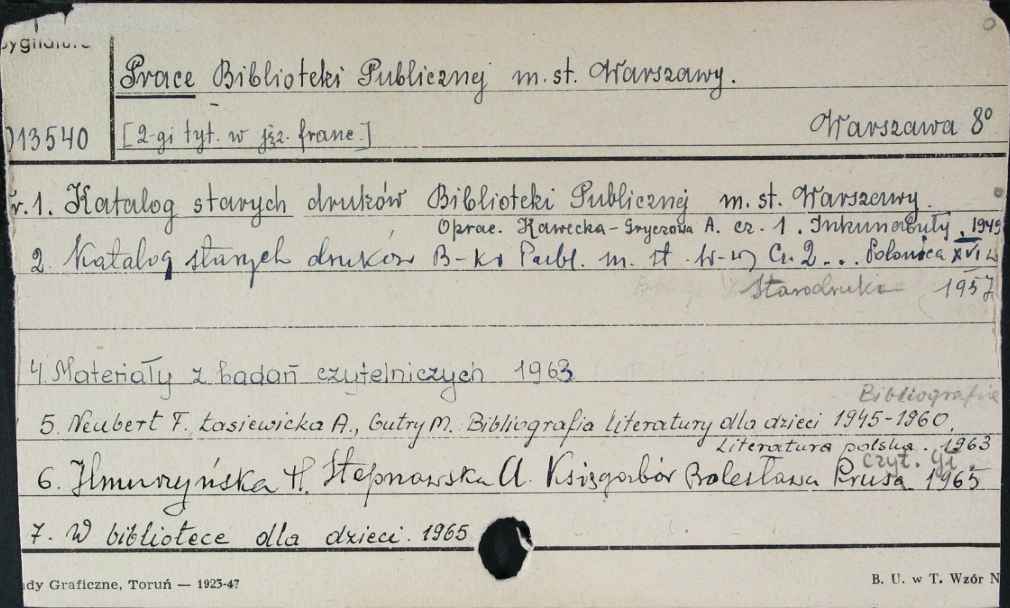 Sygnatura
Prace Biblioteki Publicznej m. st. Warszawy.
013540 [2-gi tyt. w jęz. franc.] Warszawa 8°
nr. 1. Katalog starych druków Biblioteki Publicznej m. st. Warszawy.
Oprac. Kawecka-Gryczowa A. cz. 1. Inkunabuły. 1949
2. Katalog starych druków B-ki Publ. m. st. W-wy Cz. 2... Polonica XVI w
Starodruki 1957
4. Materiały z badań czytelniczych 1963
Bibliografie
5. Neubert F. Łasiewicka A., Gutry M. Bibliografia literatury dla dzieci 1945-1960.
Literatura polska. 1963
czyt. gł.
6. Ilmurzyńska H. Stepnowska A. Księgozbiór Bolesława Prusa 1965
7. W bibliotece dla dzieci. 1965
dy Graficzne, Toruń — 1923-47 B. U. w T. Wzór N